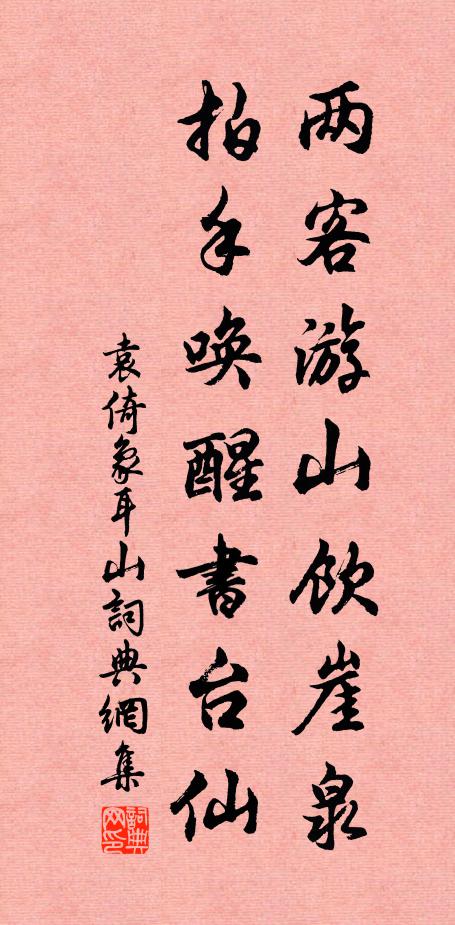 两客游山饮崖泉
拍手唤醒书台仙
袁倚象耳山詞典網集
詞典网印